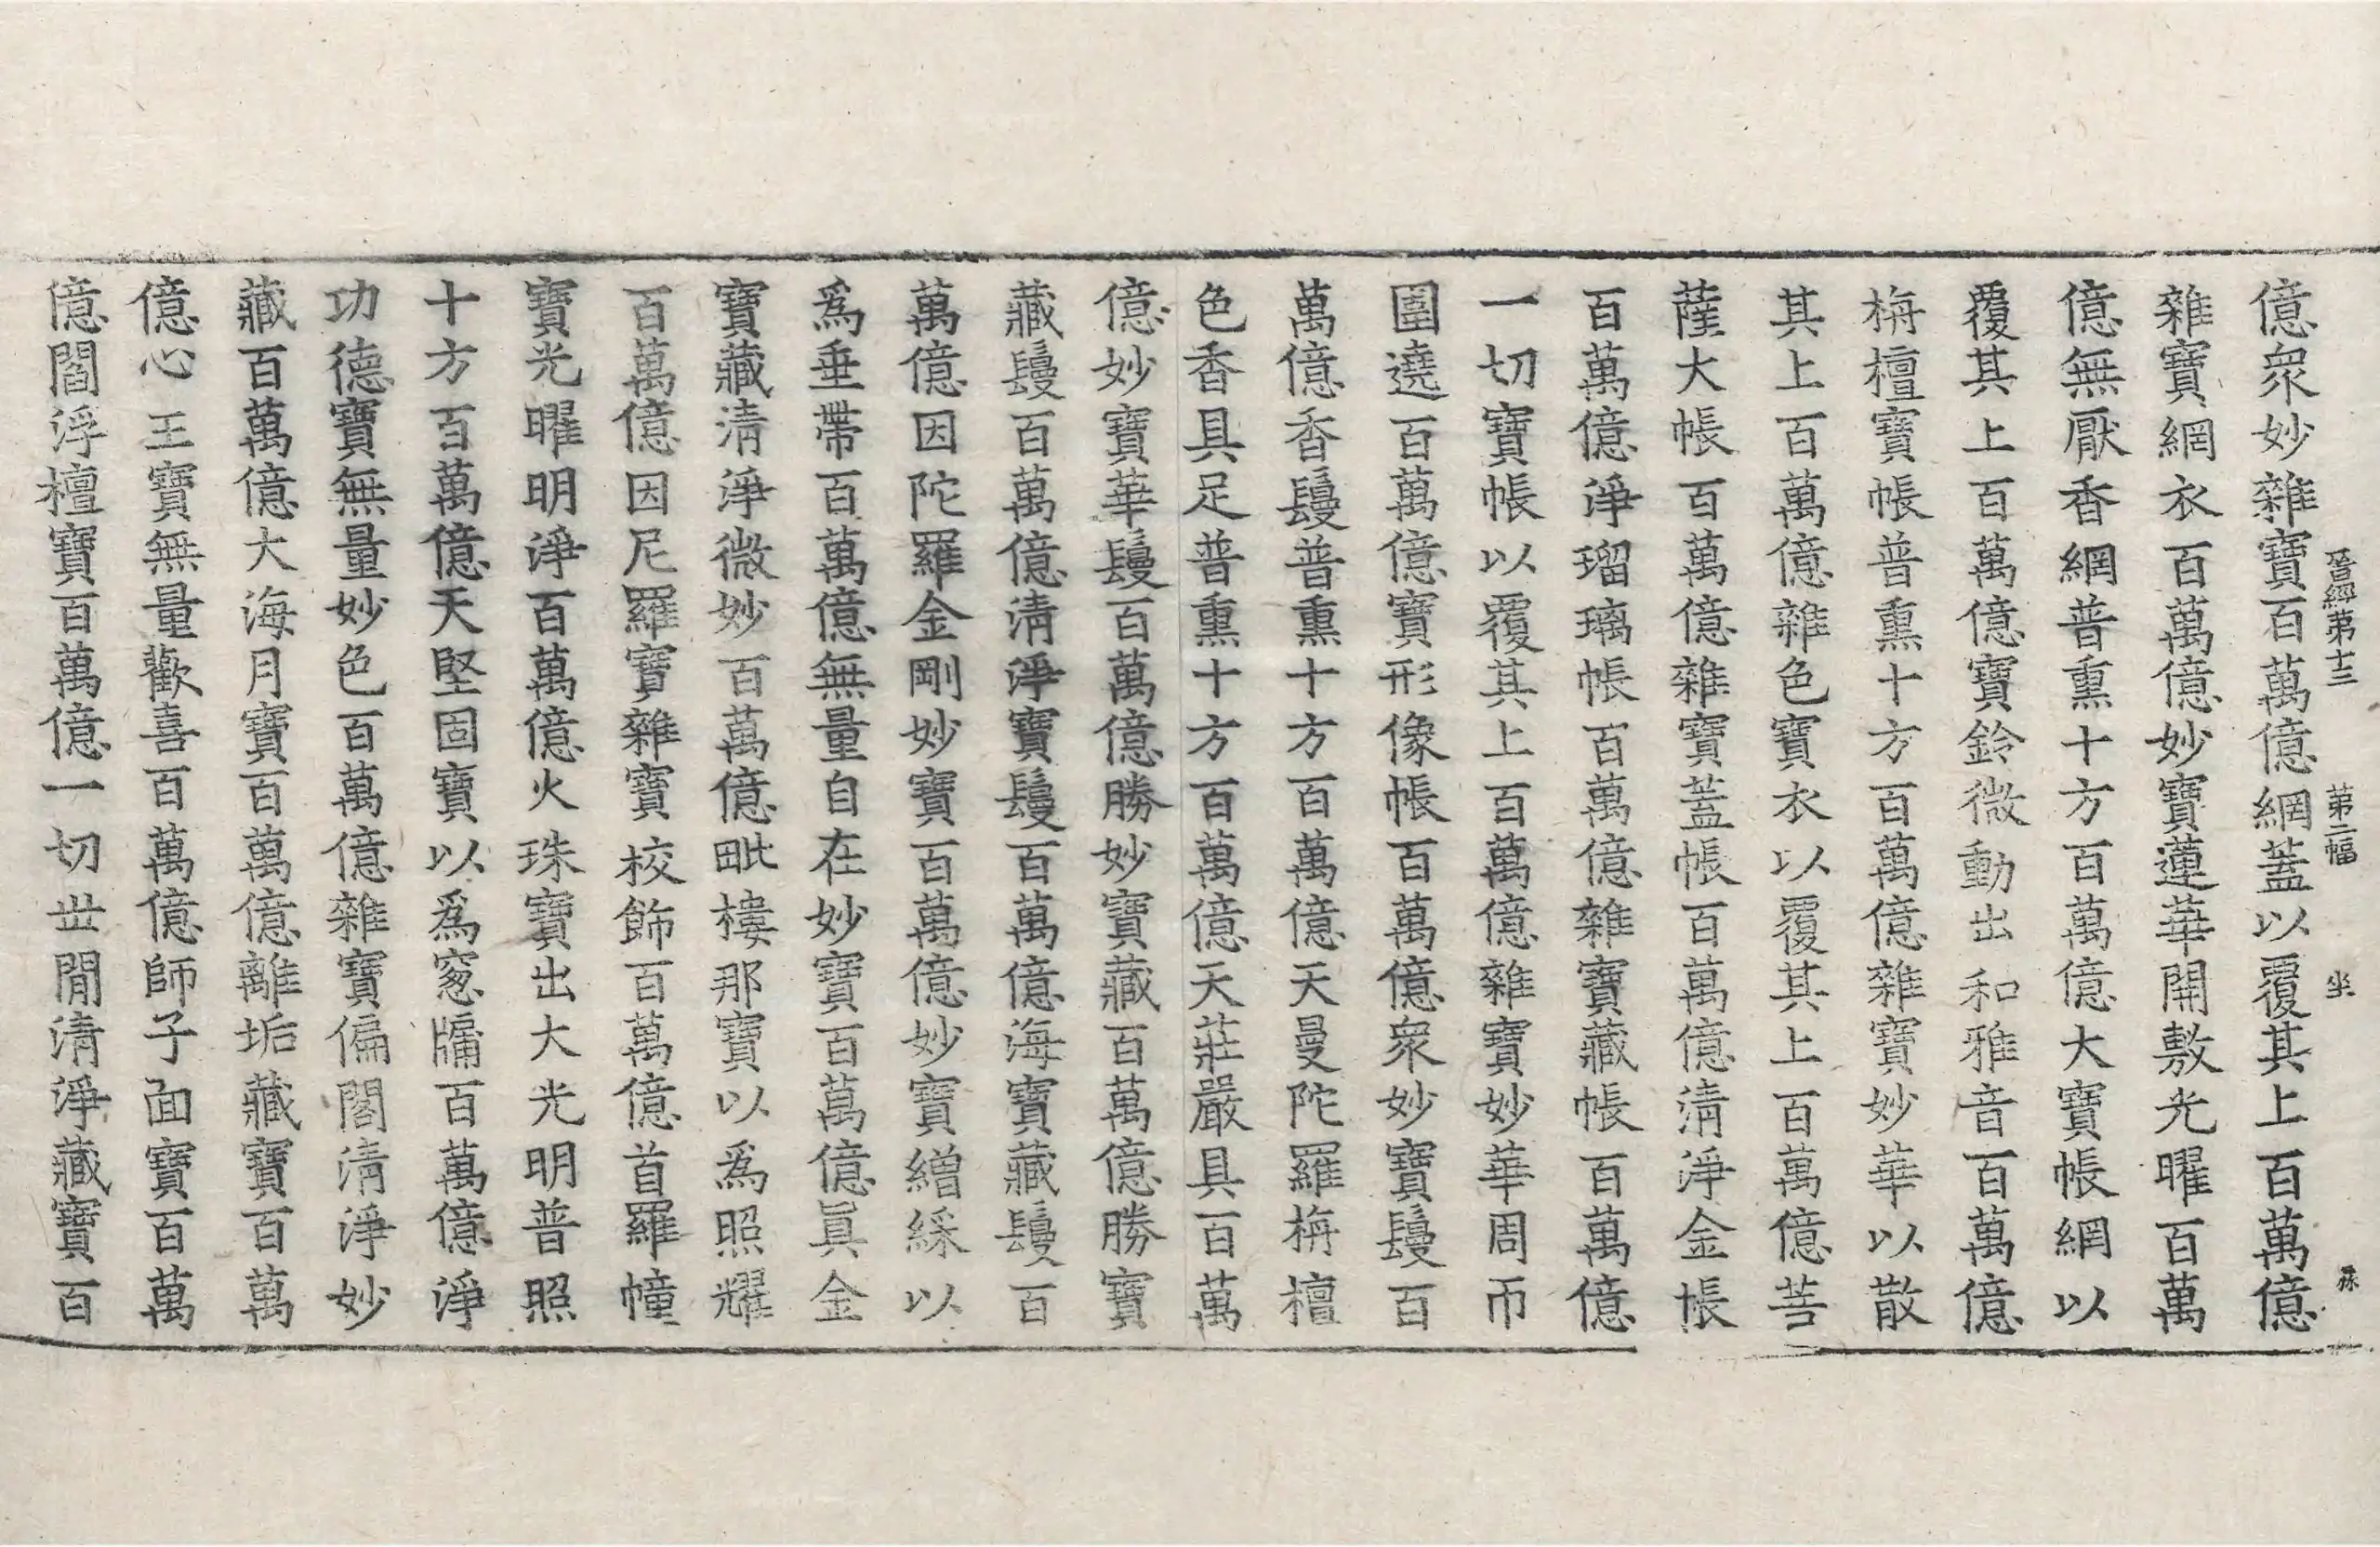 晉經第十三 第二幅 坐 孫
億衆妙雜寶百萬億網蓋以覆其上百萬億
雜寶網衣百萬億妙寶蓮華開敷光曜百萬
億無厭香網普熏十方百萬億大寶帳網以
覆其上百萬億寶鈴微動出和雅音百萬億
栴檀寶帳普熏十方百萬億雜寶妙華以散
其上百萬億雜色寶衣以覆其上百萬億菩
薩大帳百萬億雜寶蓋帳百萬億清淨金帳
百萬億淨瑠璃帳百萬億雜寶藏帳百萬億
一切寶帳以覆其上百萬億雜寶妙華周帀
圍遶百萬億寶形像帳百萬億衆妙寶鬘百
萬億香鬘普熏十方百萬億天曼陀羅栴檀
色香具足普熏十方百萬億天莊嚴具百萬
億妙寶華鬘百萬億勝妙寶藏百萬億勝寶
藏鬘百萬億清淨寶鬘百萬億海寶藏鬘百
萬億因陀羅金剛妙寶百萬億妙寶繒綵以
爲垂帶百萬億無量自在妙寶百萬億眞金
寶藏清淨微妙百萬億毗樓那寶以爲照耀
百萬億因尼羅寶雜寶校飾百萬億首羅幢
寶光曜明淨百萬億火珠寶出大光明普照
十方百萬億天堅固寶以爲窓牖百萬億淨
功德寶無量妙色百萬億雜寶偏閣清淨妙
藏百萬億大海月寶百萬億離垢藏寶百萬
億心王寶無量歡喜百萬億師子面寶百萬
億閻浮檀寶百萬億一切世閒清淨藏寶百